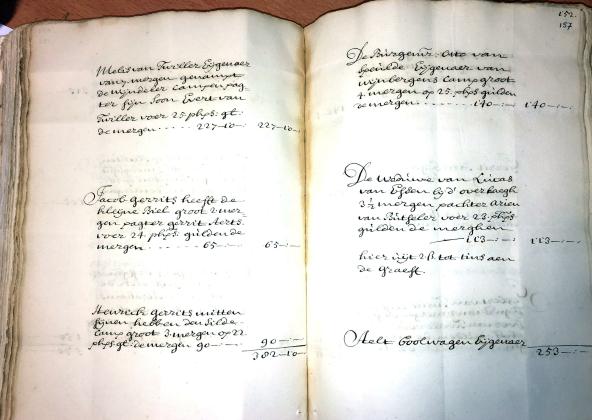 Melis van Twiller Eijgenaer
van 7 mergen genaempt
de wijndeler campen pag
ter sijn soon Evert van
Twiller voer 25 phps: gl:
de mergen 227-10- 227-10-
Jacob Gerrits heeft de
kleijne Biel groot 2 mer
gen pagter gerrit Aerts
voer 24 phps: gulden de
mergen 65-:- 65-:-
Henrick Gerrits
hebben den
camp groot 3 mergen op 22
phps gl: de mergen 90-:- 90-:-
382-10
152.
157
De Burgemr: Otto van
Speulde Eijgenaer van
wijnbergens camp groot
4 mergen op 25 phps gulden
de mergen 140-:- 140-:-
De Weduwe van Lucas
van Essen bij d' overhaegh
3½ mergen pachter arien
van Butseler voer 23 phps
gulden de merghen
113-:- 113-:-
hier uijt 2 ß tot tins aen
de graeft.
Aelt Coolwagen Eijgenaer
253-:-